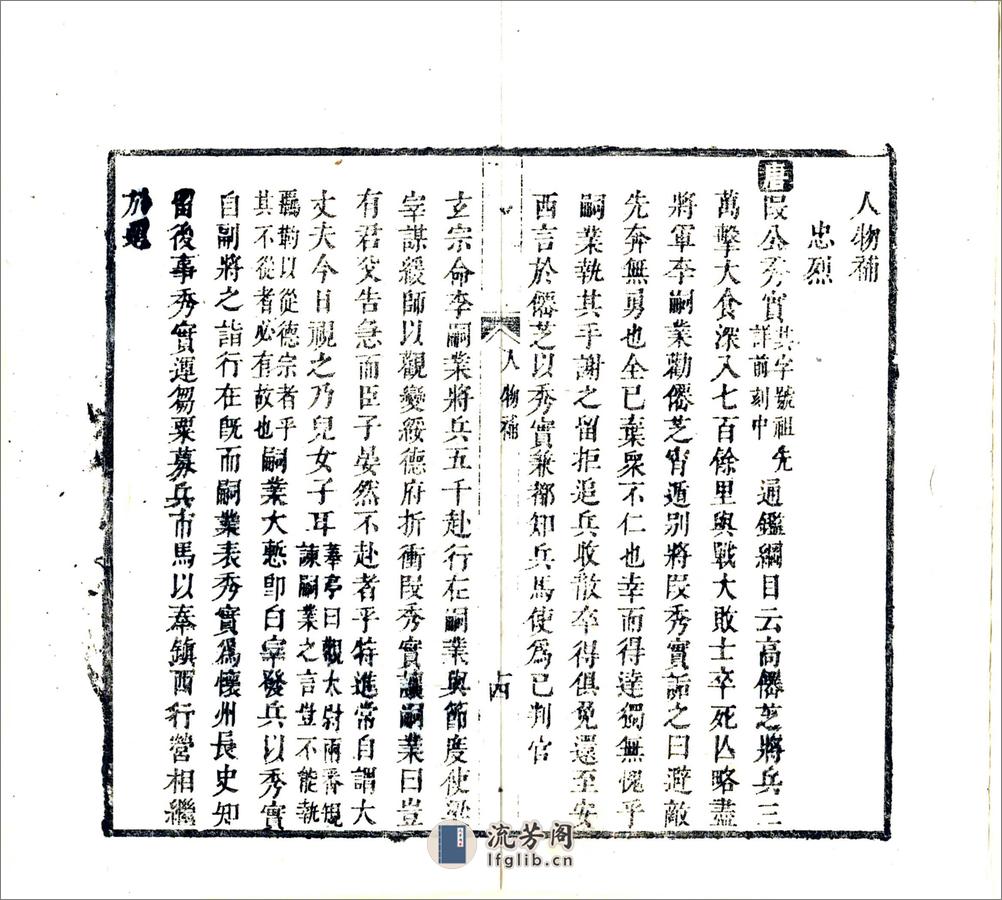 人物補
忠烈
唐段公秀實其字號祖先詳前刻中通鑑綱目云高僊芝將兵三
萬擊大食深入七百餘里與戰大敗士卒死亾略盡
將軍李嗣業勸僊芝宵遁别將段秀實詬之曰避敵
先奔無勇也全已棄衆不仁也幸而得達獨無愧乎
嗣業執其手謝之留拒追兵收散卒得俱免還至安
西言於僊芝以秀實兼都知兵馬使爲己判官
人物補
四
玄宗命李嗣業將兵五千赴行在嗣業與節度使梁
宰謀緩師以觀變綏德府折衝段秀實讓嗣業曰豈
有君父告急而臣子晏然不赴者乎特進常自謂大
丈夫今日視之乃兒女子耳菶亭曰觀太尉兩番規諫嗣業之言豈不能執
羈勒以從德宗者乎其不從者必有故也嗣業大慙卽白宰發兵以秀實
自副將之詣行在旣而嗣業表秀實爲懷州長史知
留後事秀實運芻粟募兵市馬以奉鎮西行營相繼
於
流芳阁
lfglib.cn